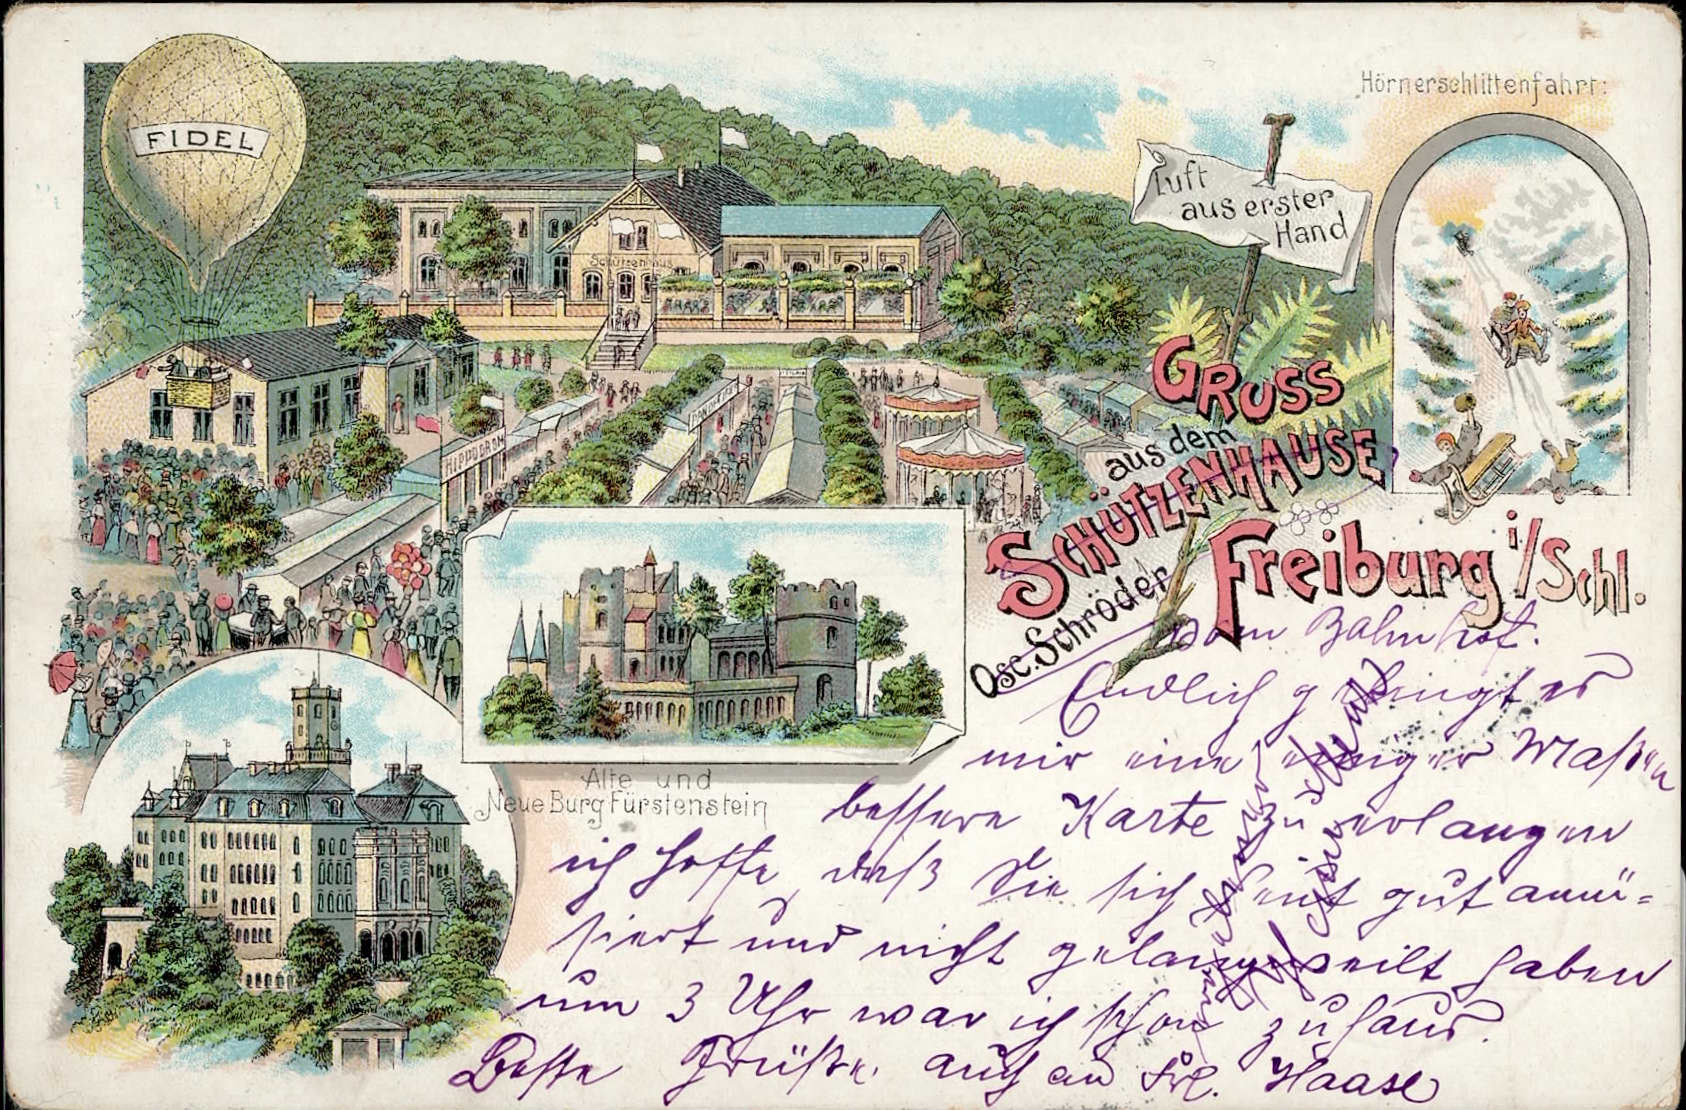 FIDEL
Hörnerschlittenfahrt:
Luft
aus erster
Hand
Schützenhaus
HIPPODROM
GRUSS
aus dem
SCHÜTZENHAUSE
Freiburg i/Schl.
Osc. Schröder
Alte und
Neue Burg Fürstenstein
vom Bahnhof.
Endlich gelingt es
mir eine einiger Maßen
bessere Karte zu erlangen
ich hoffe, daß Sie sich heut gut amü-
siert und nicht gelangweilt haben
um 3 Uhr war ich schon zuhaus.
Beste Grüße, auch an Frl. Haase